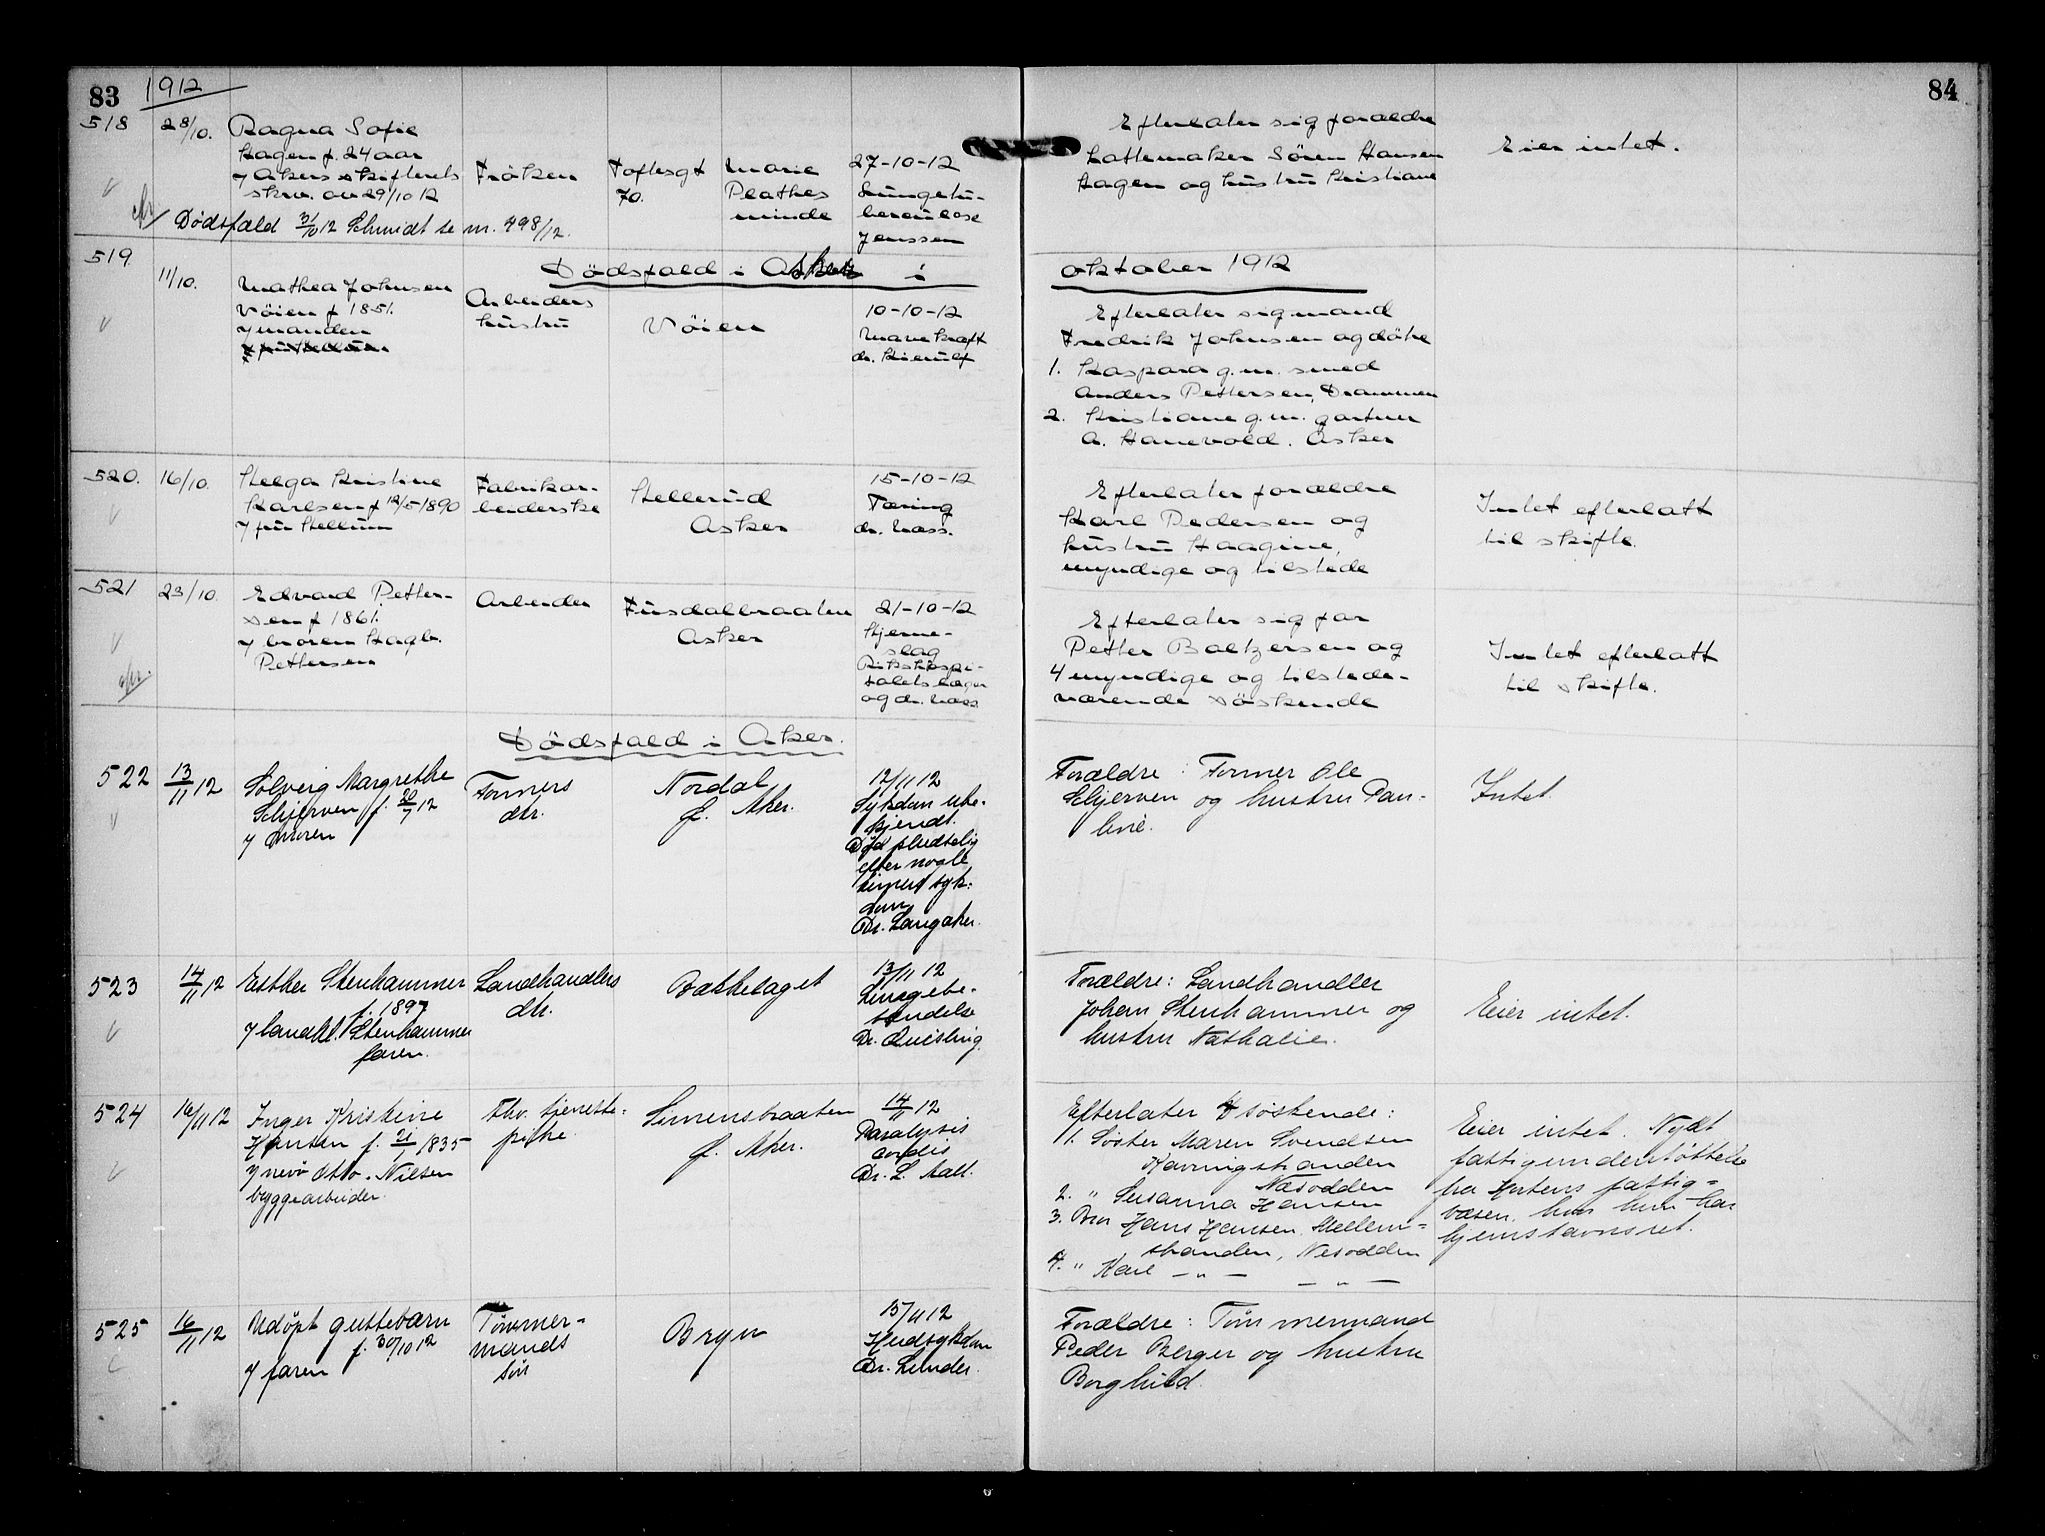 83
1912
84
518
28/10.
Ragna Sofie
Hagen f. 24 aar
v/ Akers skifterets
skriv. av 29/10 12
Frøken
Toftesgt
70.
Marie
Plathes
minde
27-10-12
Lungetu-
berculose
Jenssen
Efterlater sig forældre
Hattemaker Sören Hansen
Hagen og hustru Kristiane
Eier intet.
Dødsfald 31/10 12 Schmidt se nr. 498/12.
Dödsfald i Asker i
oktober 1912
519
11/10.
Mathea Johnsen
Vöien f. 1851.
v/ manden
Arbeiders
hustru
Vöien
10-10-12
Mavekræft
dr. Kierulf
Efterlater sig mand
Fredrik Johnsen og döttre
1. Kaspara g.m. smed
Anders Pettersen, Drammen
2. Kristiane g.m. gartner
A. Hanevold. Asker
520.
16/10.
Helga Kristine
Karlsen f 12/5 1890
v/ fru Hellum
Fabrikar-
beiderske
Hellerud
Asker
15-10-12
Tæring
dr. Næss.
Efterlater forældre
Karl Pedersen og
hustru Haagine,
myndige og tilstede
Intet efterlatt
til skifte.
521
23/10.
Edvard Petter-
sen f 1861.
v/ broren Hagb.
Pettersen
Arbeider
Fusdalbraaten
Asker
21-10-12
Hjerne-
slag
Rikshospi-
talets læger
og dr. Næss
Efterlater sig far
Petter Baltzersen og
4 myndige og tilstede-
værende söskende
Intet efterlatt
til skifte.
Dödsfald i Asker.
522
13/11 12
Solveig Margrethe
Schjerven f. 20/7 12
v/ moren
Formers
dtr.
Nordal
f. Aker.
12/11 12
Sykdom ube-
kjendt.
Död pludselig
efter nogle
timers syk-
dom
Dr. Langaker.
Forældre: Former Ole
Schjerven og hustru Pau-
line.
Intet.
523
14/11 12
Esther Stenhammer
f. 1897
v/ landhl. Stenhammer
faren.
Landhandlers
dtr.
Bækkelaget
13/11 12
Lungebe-
tændelse
Dr. Quisling.
Forældre: Landhandler
Johan Stenhammer og
hustru Nathalie.
Eier intet.
524
16/11 12
Inger Kristine
Hansen f. 21/1 1835
v/ nevø Otto Nilsen
byggearbeider.
Fhv. tjeneste-
pike
Simensbraaten
f. Aker.
14/11 12
Paralysis
cordis
Dr. L. Aall.
Efterlater 4 söskende:
1. Söster Maren Svendsen
Kavringstranden
Næsodden
2. " Susanna Hansen
3. Bror Hans Hansen Mellem-
stranden, Nesodden
4. " Karl — " — — " —
Eier intet. Nydt
fattigunderstöttelse
fra Hurtens fattig-
væsen, hvor hun har
hjemstavnsret.
525
16/11 12
Udöpt guttebarn
f. 30/10 12
v/ faren
Tömmer-
mands
sön
Bryn
15/11 12
Hudsykdom
Dr. Linder.
Forældre: Tömmermand
Peder Berger og hustru
Borghild.